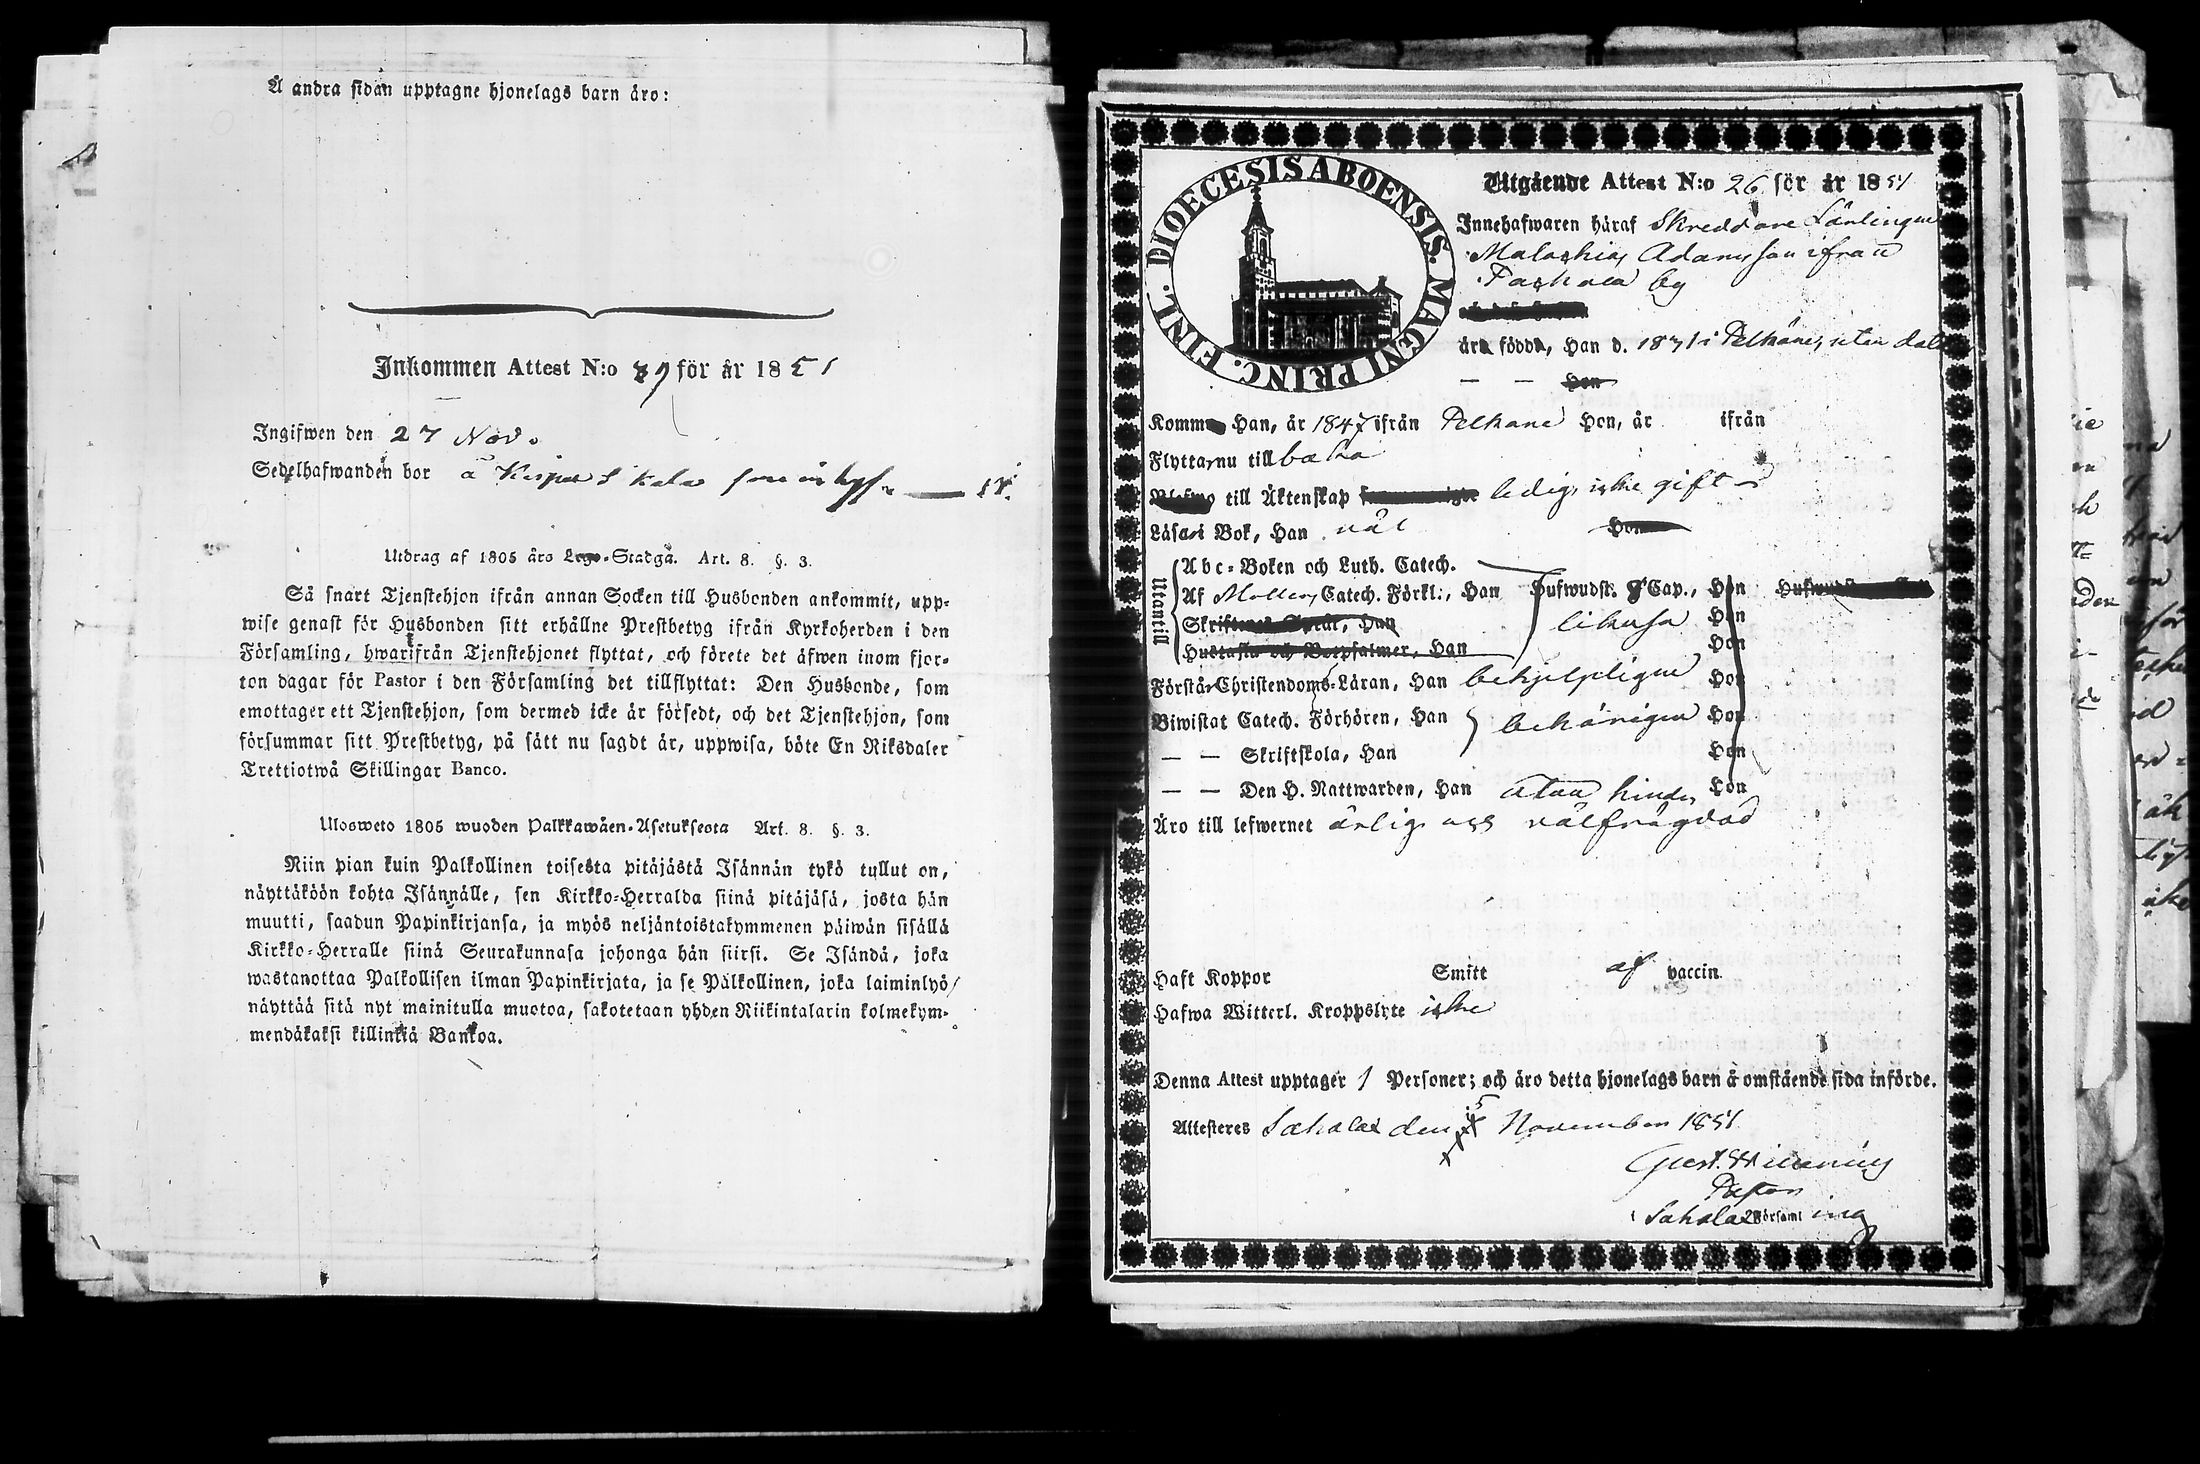 Å andra sidan upptagne hjonelags barn äro:
Inkommen Attest N:o 89 för år 1851
Ingifwen den 27 Nov.
Sedelhafwanden bor å
Utdrag af 1805 års Lego-Stadga. Art. 8. §. 3.
Så snart Tjenstehjon ifrån annan Socken till Husbonden ankommit, upp-
wise genast för Husbonden sitt erhållne Prestbetyg ifrån Kyrkoherden i den
Församling, hwarifrån Tjenstehjonet flyttat, och förete det äfwen inom fjor-
ton dagar för Pastor i den Församling det tillflyttat: Den Husbonde, som
emottager ett Tjenstehjon, som dermed icke är försedt, och det Tjenstehjon, som
försummar sitt Prestbetyg, på sätt nu sagdt är, uppwisa, böte En Riksdaler
Trettiotwå Skillingar Banco.
Ulosweto 1805 wuoden Palkkawäen-Asetuksesta Art. 8. §. 3.
Niin pian kuin Palkollinen toisesta pitäjästä Isännän tykö tullut on,
näyttäköön kohta Isännälle, sen Kirkko-Herralda siinä pitäjäsä, josta hän
muutti, saadun Papinkirjansa, ja myös neljäntoistakymmenen päiwän sisällä
Kirkko-Herralle siinä Seurakunnasa johonga hän siirsi. Se Isändä, joka
wastanottaa Palkollisen ilman Papinkirjata, ja se Palkollinen, joka laiminlyö
näyttää sitä nyt mainitulla muotoa, sakotetaan yhden Riikintalarin kolmekym-
mendäkaksi killinkiä Bankoa.
DIOECESIS ABOENSIS. MAGNI PRINC. FINL.
Utgående Attest N:o 26 för år 1851
Innehafwaren häraf Skreddare Lärlingen
Malachias Adamsson ifrån
by
är född, Han d. 1831 i Pelkäne, utan dato
Hon
Komm Han, år 1847 ifrån Pelkane Hon, år ifrån
Flyttar nu till baka
till Äktenskap ledig, icke gift
Läser i Bok, Han väl Hon
Utantill
Abc-Boken och Luth. Catech.
Af Möllers Catech. Förkl:, Han Hufwudst. 8 Cap., Hon Hufwudst.
Skriftenes Språk, Han likaså Hon
Hustaflan och Botpsalmer, Han Hon
Förstår Christendoms-Läran, Han behjelpligen Hon
Biwistat Catech. Förhören, Han behörigen Hon
— — Skriftskola, Han Hon
— — Den H. Nattwarden, Han utan hinder Hon
Äro till lefwernet ärlig och välfrägdad
Haft Koppor Smitt af vaccin
Hafwa Witterl. Kroppslyte icke
Denna Attest upptager 1 Personer; och äro detta hjonelags barn å omstående sida införde.
Attesteres Sahalax den 5 November 1851
Gust.
Pastor
i Sahalax Församling